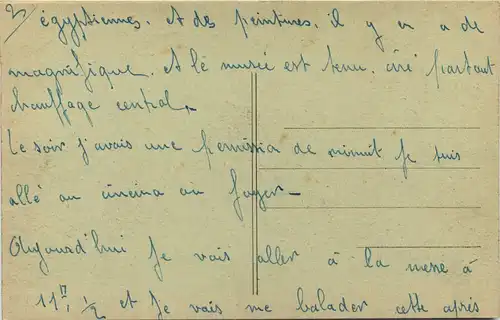 2)
égyptiennes. et des peintures. il y en a de
magnifique. et le musée est tenu. ciré partout
chauffage central.
Le soir j'avais une permission de minuit je suis
allé au cinéma au foyer –
Aujourd'hui je vais aller à la messe à
11h 1/2 et je vais me balader cette après